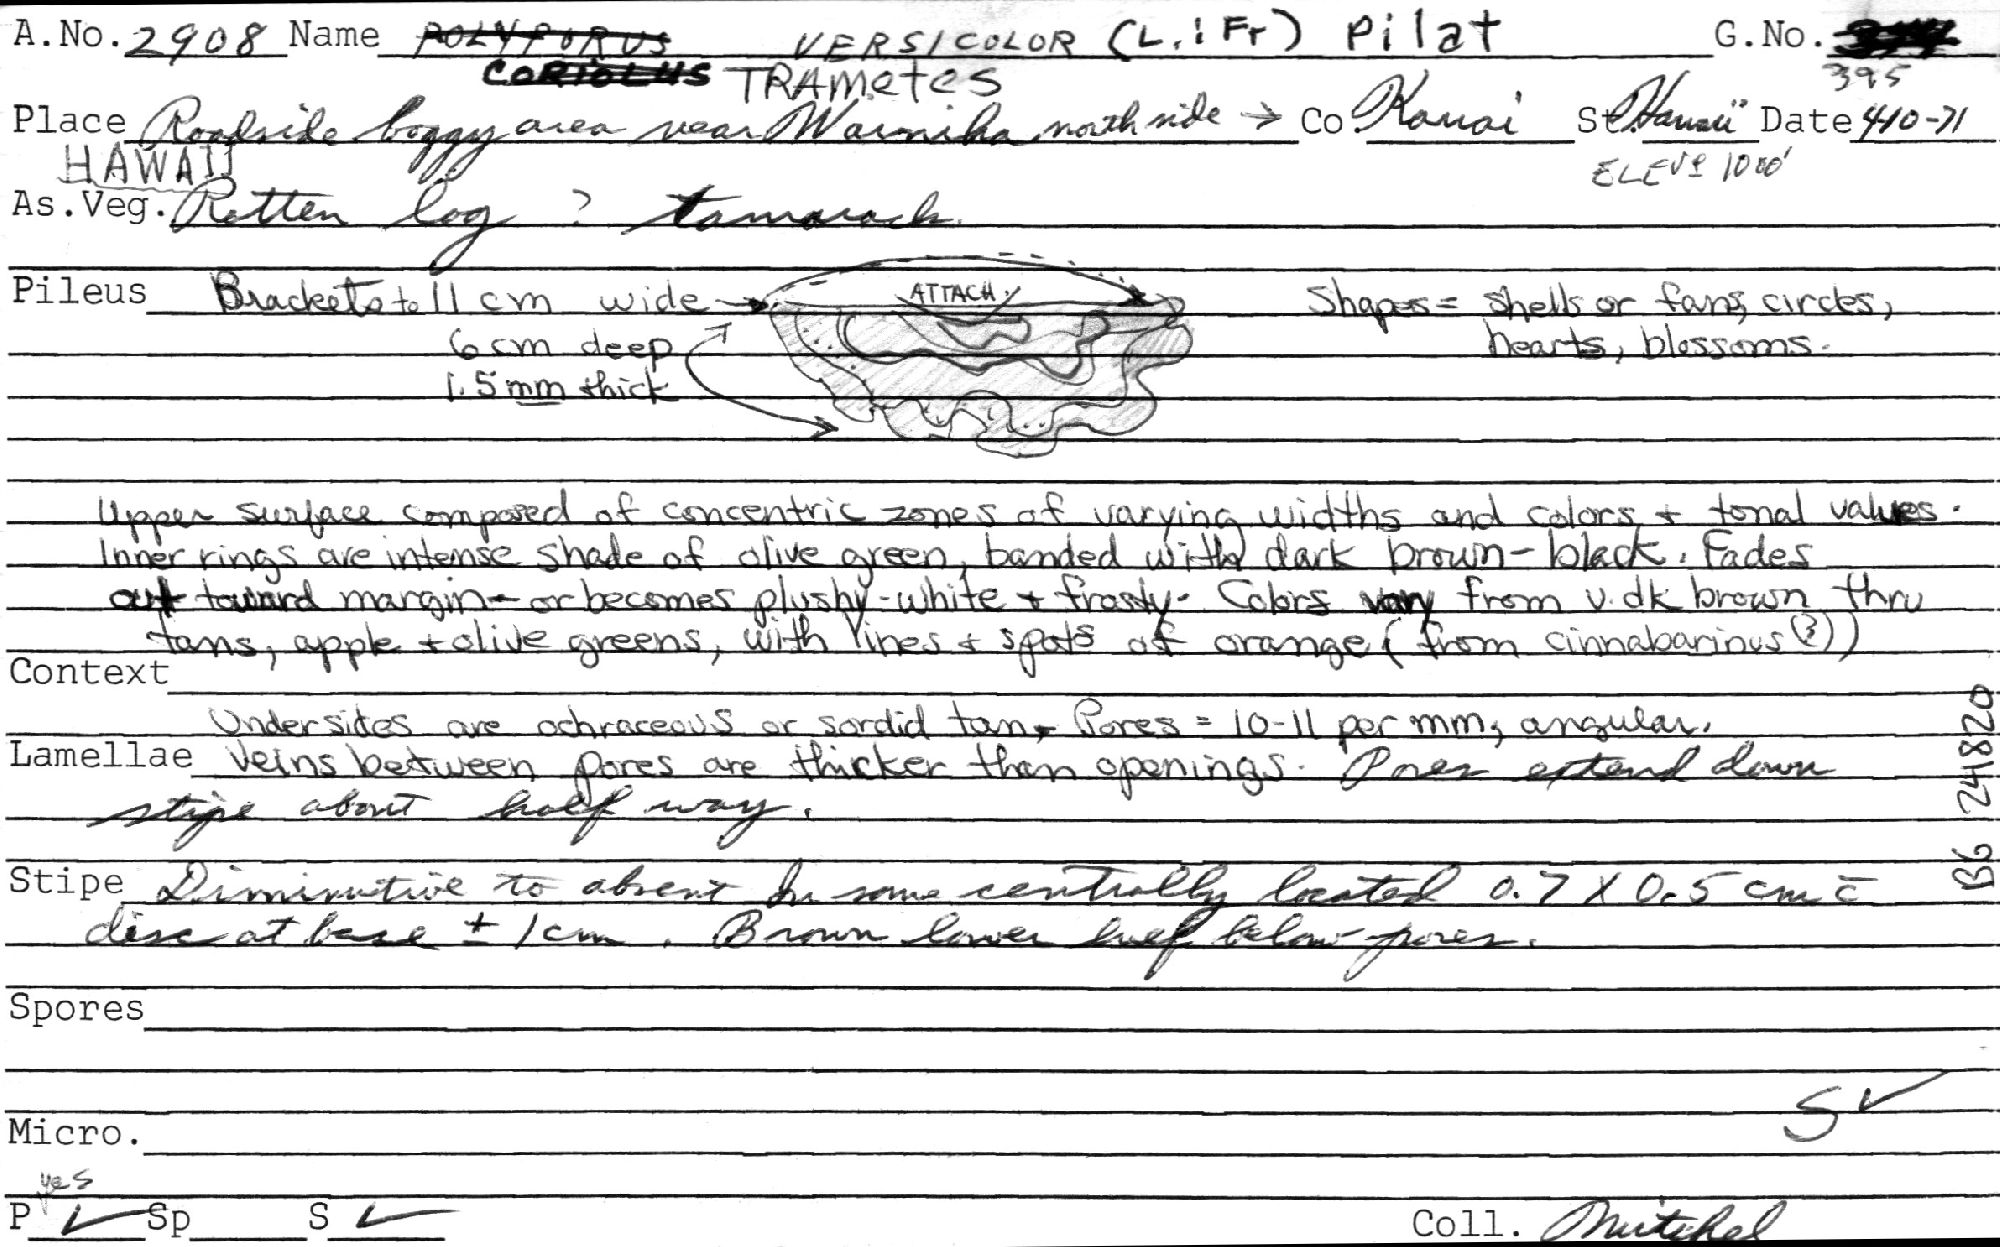 A.No. 2908 Name POLYPORUS VERSICOLOR (L.:Fr) Pilat G.No.
CORIOLUS TRAMetes 395
Place Roadside boggy area near Wainiha north side → Co. Kauai St. Hawaii Date 4-10-71
HAWAII ELEV. 1000'
As.Veg. Rotten log ? tamarack.
Pileus Brackets to 11 cm wide ATTACH. Shapes = shells or fans, circles,
6 cm deep hearts, blossoms.
1.5 mm thick
Upper surface composed of concentric zones of varying widths and colors + tonal values.
Inner rings are intense shade of olive green, banded with dark brown-black. Fades
out toward margin - or becomes plushy-white + frosty. Colors vary from v.dk brown thru
tans, apple + olive greens, with lines + spots of orange (from cinnabarinus (?))
Context
Undersides are ochraceous or sordid tan. Pores = 10-11 per mm, angular.
Lamellae Veins between pores are thicker than openings. Pores extend down
stipe about half way.
Stipe Diminutive to absent In some centrally located 0.7 X 0.5 cm c̄
disc at base ± 1 cm. Brown lower half below pores.
Spores
Micro.
S ✓
yes
P ✓ Sp S ✓ Coll. Mitchel
B6 24820